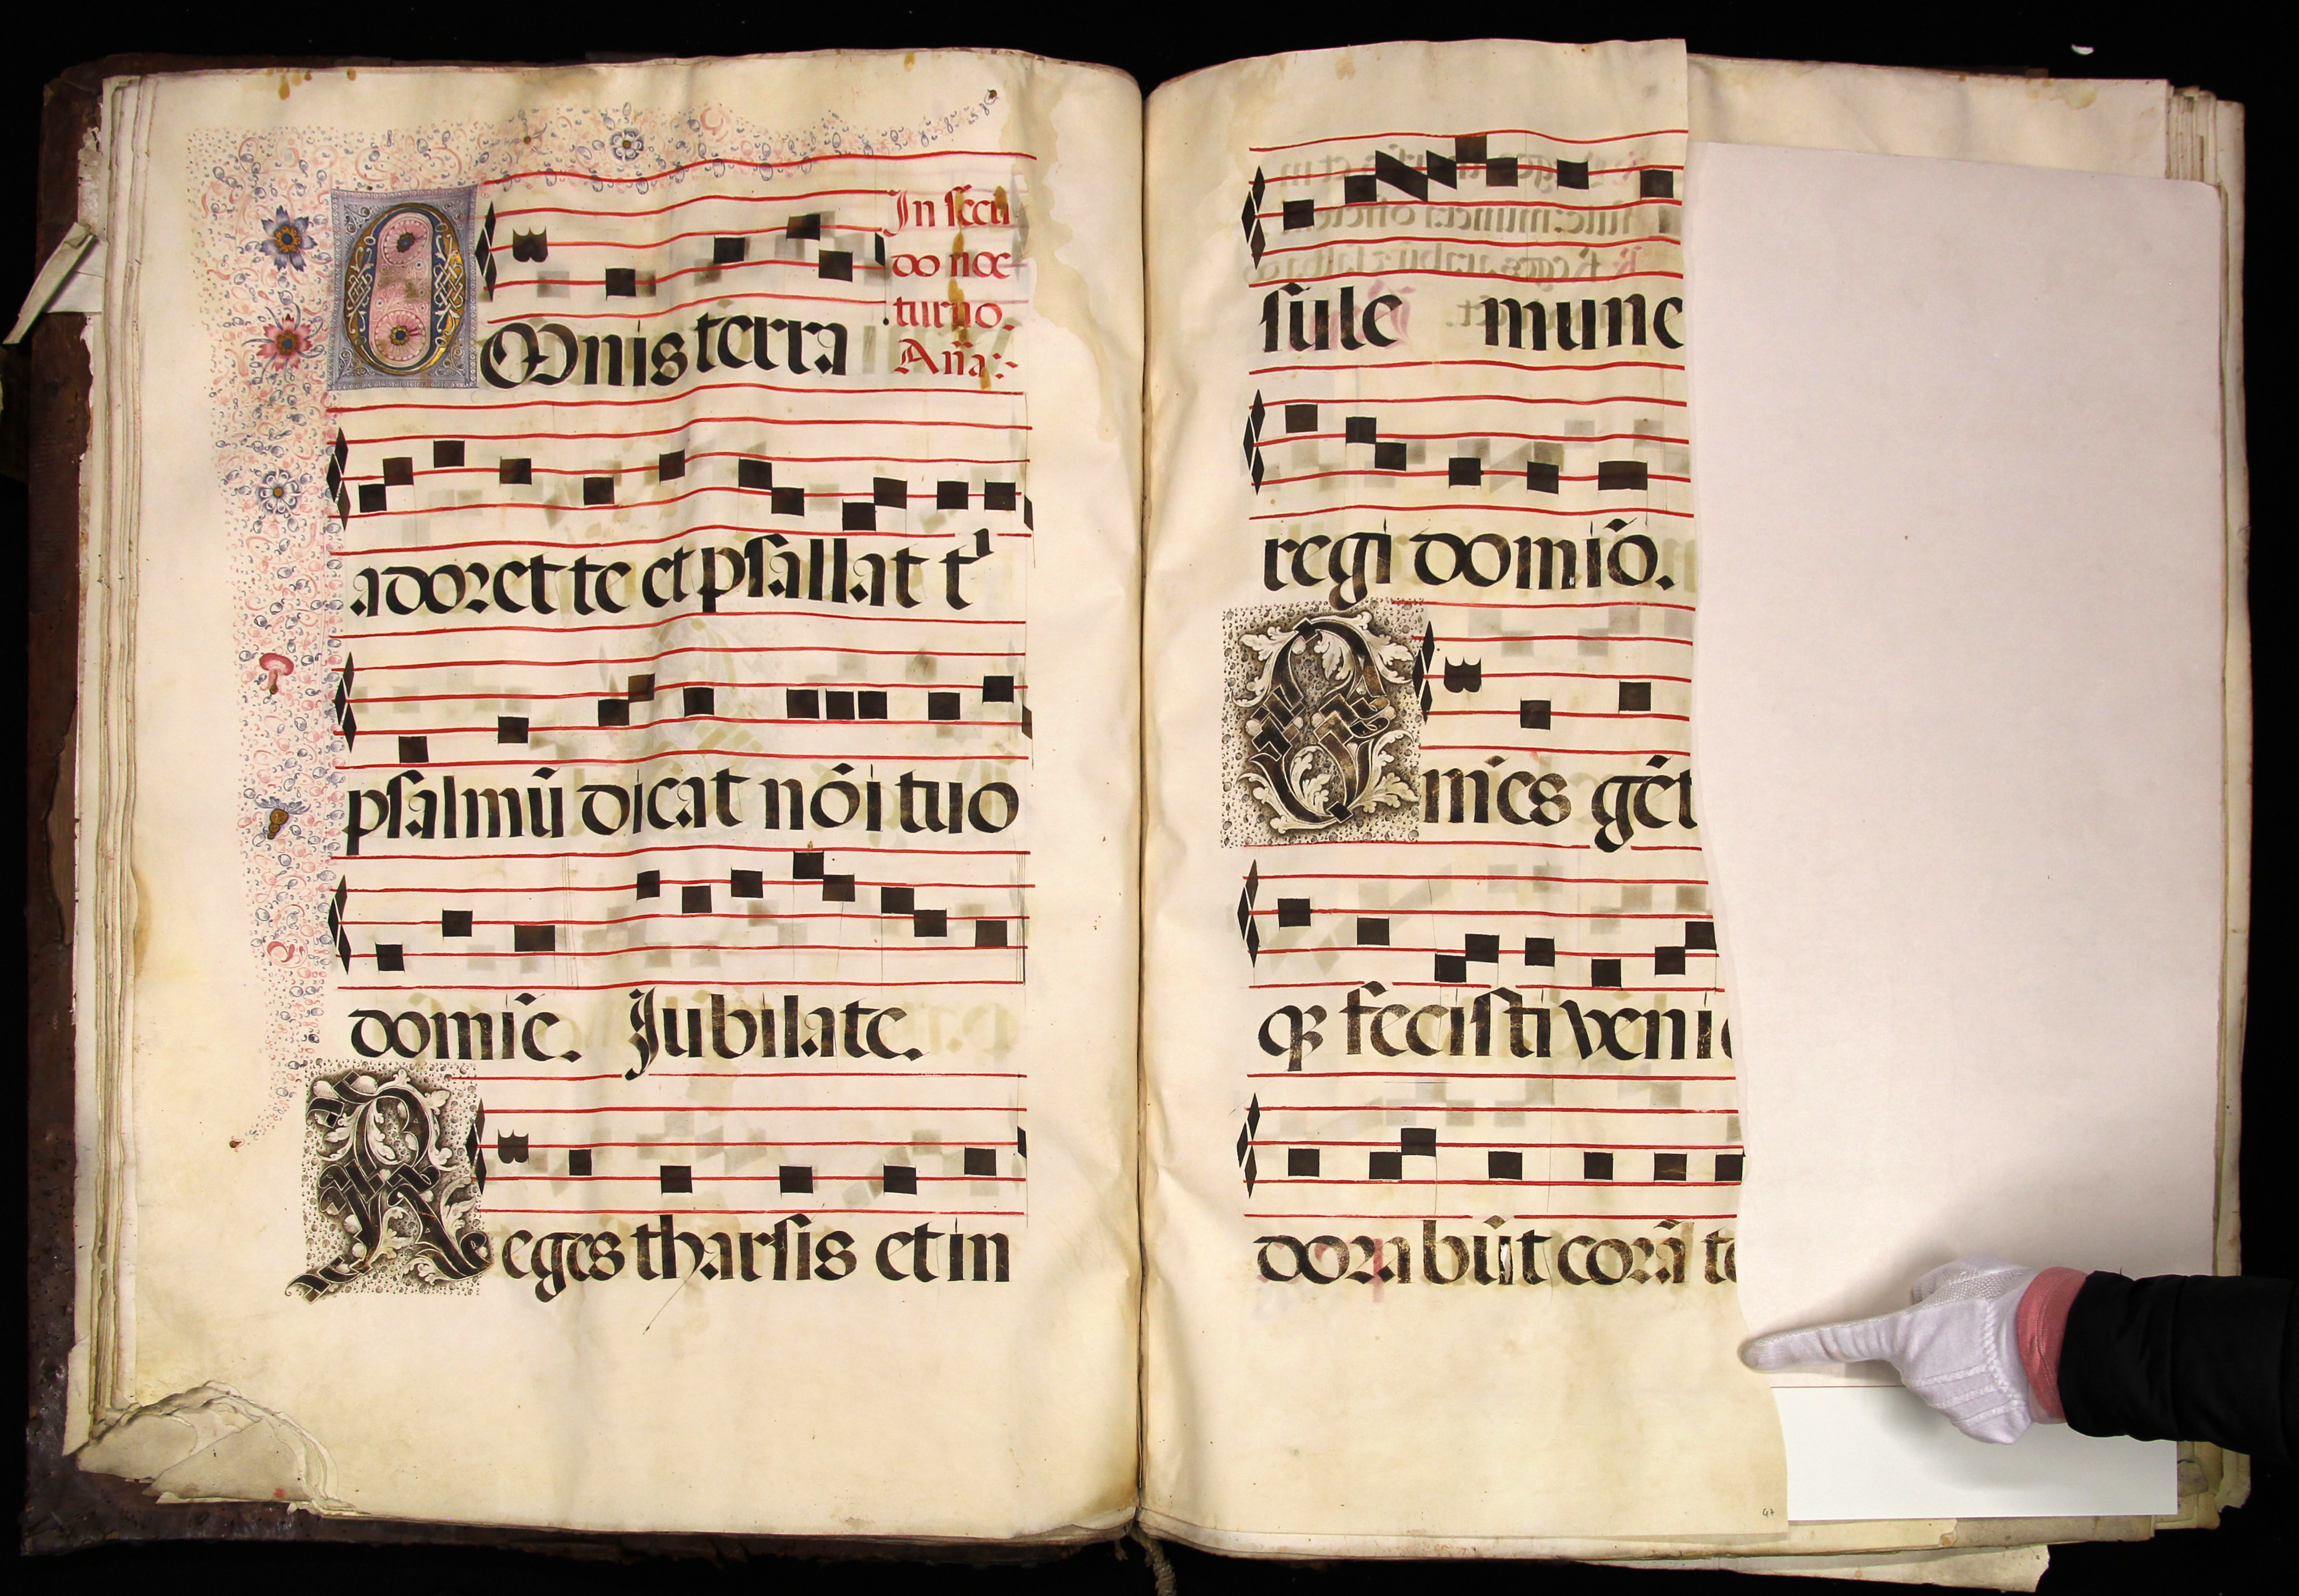 In secu
do noc
turno.
Aña:-
OMnis terra
adoret te et psallat t
psalmū dicat nōi tuo
domīe. Jubilate.
Reges tharsis et in
sule mune
regi domīo.
Omīes gēt
qz fecisti veni
dorabūt corā te
47